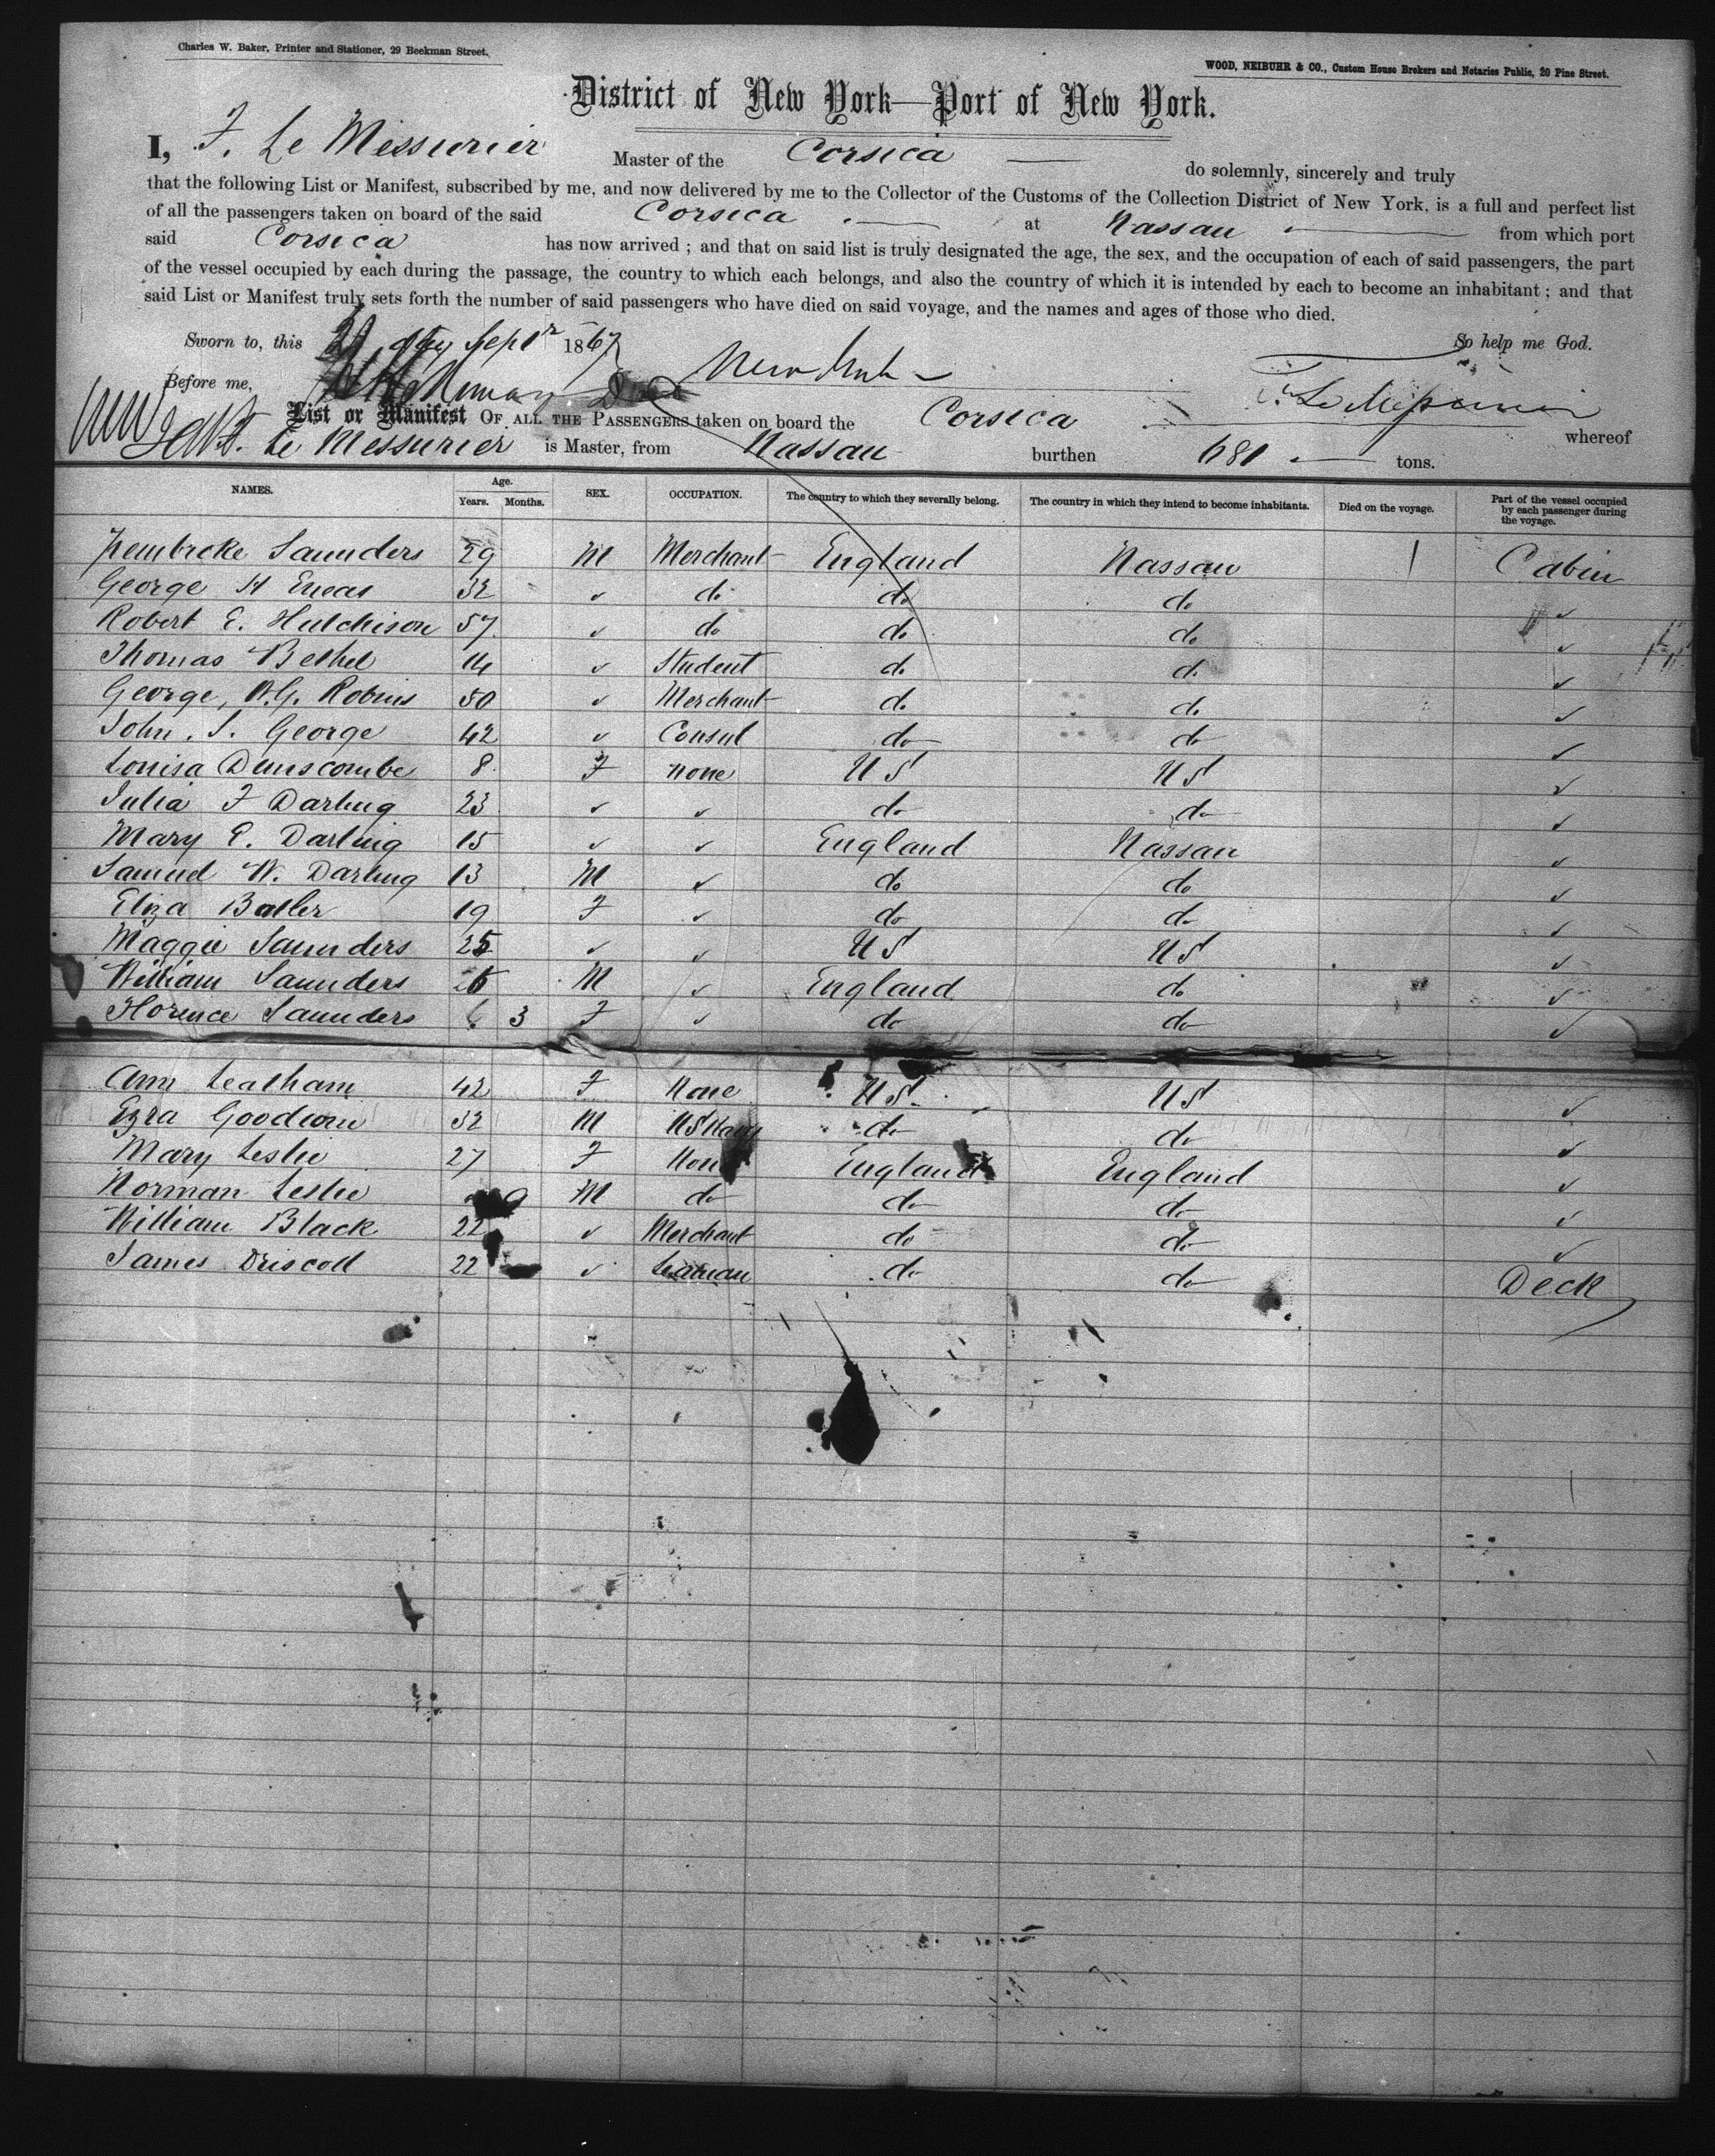 Charles W. Baker, Printer and Stationer, 29 Beekman Street.
WOOD, NEIBUHR & CO., Custom House Brokers and Notaries Public, 20 Pine Street.
District of New York—Port of New York.
I, F. Le Messurier Master of the Corsica do solemnly, sincerely and truly
that the following List or Manifest, subscribed by me, and now delivered by me to the Collector of the Customs of the Collection District of New York, is a full and perfect list
of all the passengers taken on board of the said Corsica at Nassau from which port
said Corsica has now arrived ; and that on said list is truly designated the age, the sex, and the occupation of each of said passengers, the part
of the vessel occupied by each during the passage, the country to which each belongs, and also the country of which it is intended by each to become an inhabitant ; and that
said List or Manifest truly sets forth the number of said passengers who have died on said voyage, and the names and ages of those who died.
Sworn to, this day Septr 1867 So help me God.
Before me, New York F. Le Messurier
List or Manifest OF ALL THE PASSENGERS taken on board the Corsica whereof
F. Le Messurier is Master, from Nassau burthen 681 tons.
NAMES. Age. Years. Months. SEX. OCCUPATION. The country to which they severally belong. The country in which they intend to become inhabitants. Died on the voyage. Part of the vessel occupied by each passenger during the voyage.
Pembroke Saunders 29 M Merchant England Nassau Cabin
George H Eneas 32 ✓ do do do ✓
Robert E. Hutchison 57 ✓ do do do ✓
Thomas Bethel 14 ✓ Student do do ✓
George, Robins 50 ✓ Merchant do do ✓
John. S. George 42 ✓ Consul do do ✓
Louisa Dunscombe 8 F None US US ✓
Julia F Darling 23 ✓ ✓ do do ✓
Mary E. Darling 15 ✓ ✓ England Nassau ✓
Samuel W. Darling 13 M ✓ do do ✓
Eliza Butler 19 F ✓ do do ✓
Maggie Saunders 25 ✓ ✓ US US ✓
William Saunders M ✓ England do ✓
Florence Saunders 3 F ✓ do do ✓
Ann Leatham 42 F None US US ✓
Ezra Goodwin 32 M US Navy do do ✓
Mary Leslie 27 F None England England ✓
Norman Leslie M do do do ✓
William Black 22 ✓ Merchant do do ✓
James Driscoll 22 ✓ Seaman do do Deck